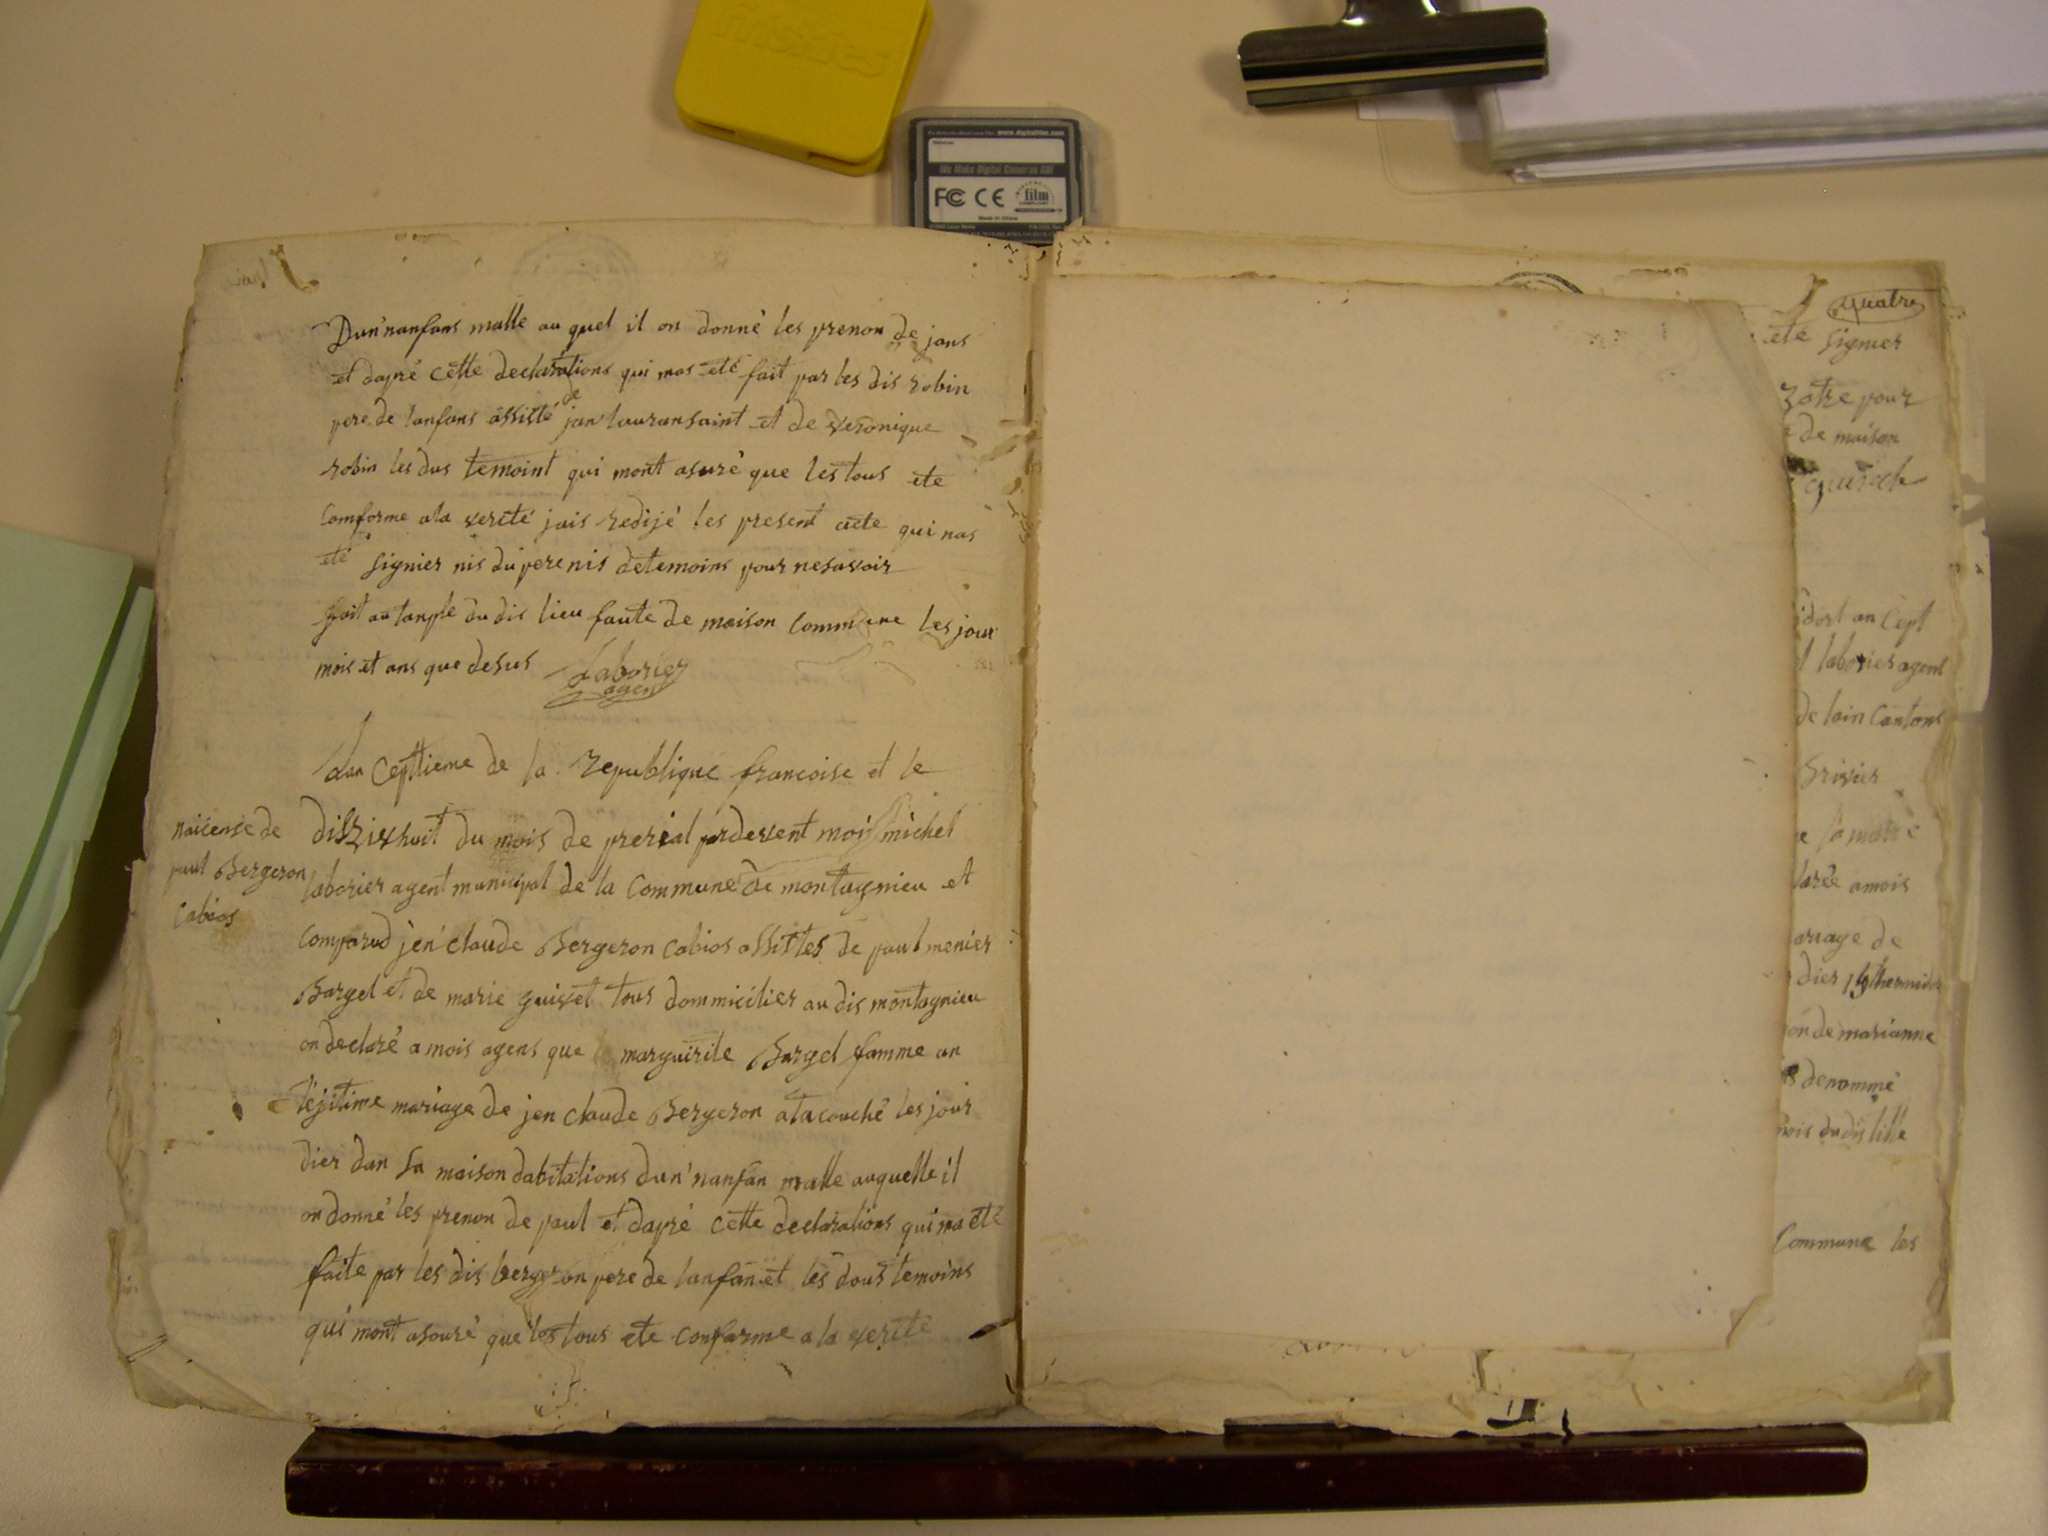 friskies
www.digitalfilm.com
We Make Digital Cameras Better
FC CE film
Made in China
Dun'nanfans malle au quel il on donné les prenon de jans
et dapré cette declarations qui mas eté fait par les dis robin
pere de lanfans assisté de jan lauransaint et de veronique
robin les dus temoint qui mont asuré que les tous ete
Comforme ala verité jais redijé les present acte qui nas
eté signier nis du pere nis detemoins pour nesavoir
fait au tanple du dis lieu faute de maison commune les jour
mois et ans que desus Laborier
agent
Lan Ceptieme de la republique francoise et le
naicense de
paul Bergeron
Cabios
diszixhuit du mois de prerial pardevent moi michel
laborier agent municipal de la Commune de montagnieu et
Comparud jen claude Bergeron Cabios assistes de paul menier
Bargel et de marie guivet tous dommicilier au dis montagnieu
on declaré a mois agens que marguirite Bargel famme an
léjitime mariage de jen claude Bergeron atacouché les jour
dier dan sa maison dabitations dun'nanfan malle auquelle il
on donné les prenon de paul et dapré cette declarations qui ma eté
faite par les dis bergeron pere de lanfan et les dous temoins
qui mont asouré que les tous ete conforme a la verité
quatre
eté signier
votre pour
de maison
an Cept
laborier agent
de lain Cantons
larée amois
ariage de
dier 15 thermidor
on de marianne
denommé
mois du dis lille
Commune les